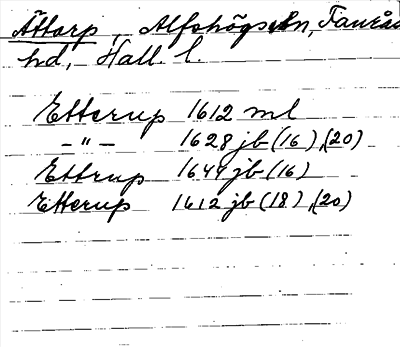 Ättarp, Alfshögs sn, Faurås
hd, Hall. l.
Etterup 1612 ml
– " – 1628 jb (16), (20)
Ettrup 1649 jb (16)
Etterup 1612 jb (18), (20)